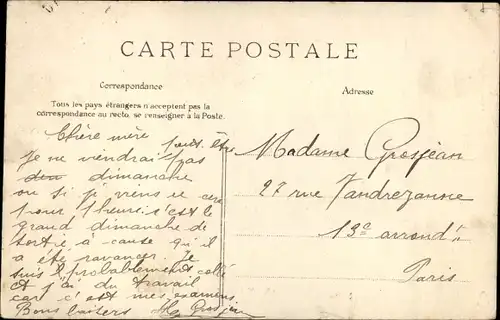 CARTE POSTALE
Correspondance
Adresse
Tous les pays étrangers n'acceptent pas la
correspondance au recto, se renseigner à la Poste.
Chère mère
peut-être
Je ne viendrai pas
dimanche
ou si je viens ce sera
pour 1 heure. c'est le
grand dimanche de
sortie à cause qu'il
a été ravancer. Je
suis probablement collé
et j'ai du travail
car c'est mes examens
Bons baisers Grosjean
Madame Grosjean
27 rue Vandrezanne
13e arrondt
Paris